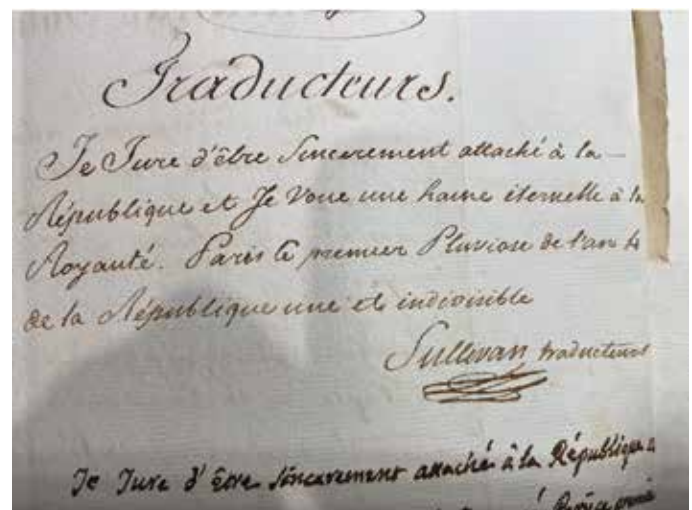 Traducteurs.
Je Jure d'être Sincerement attaché à la
République et Je Voue une haine éternelle à la
Royauté. Paris le premier Pluviose de l'an 4
de la République une et indivisible
Sullivan traducteur
Je Jure d'être Sincerement attaché à la République